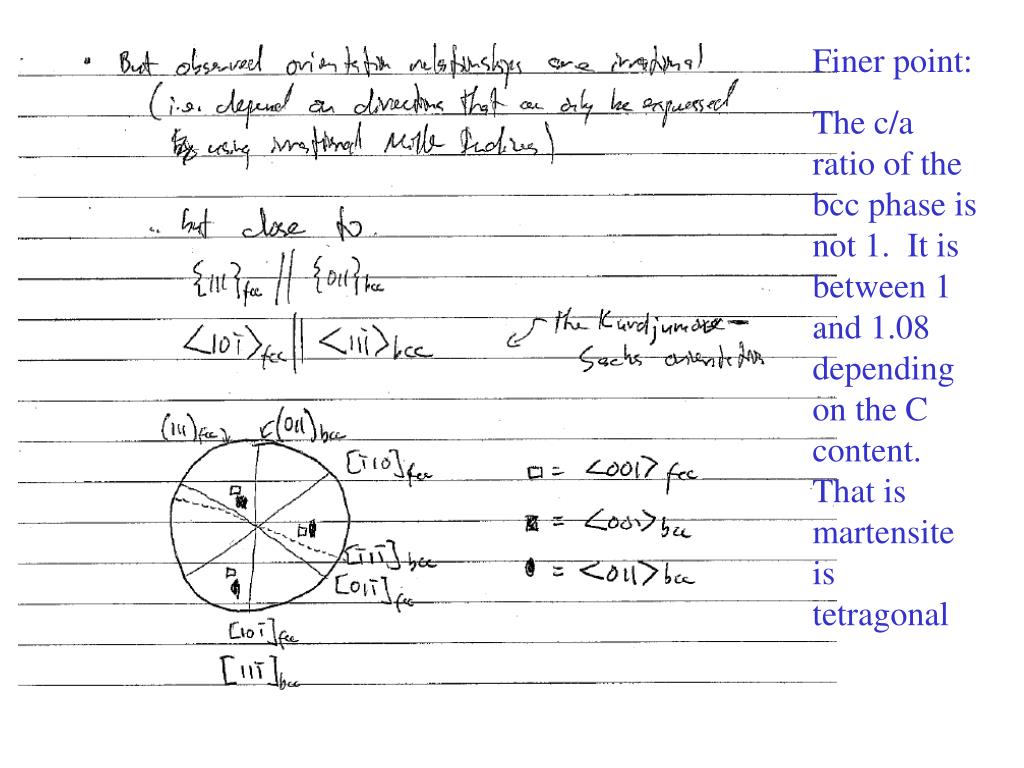 • But observed orientation relationships are irrational
(i.e. depend on directions that can only be expressed
by using irrational Miller Indices)
.. but close to.
{111}fcc // {011}bcc
<101̄>fcc || <111̄>bcc
the Kurdjumov-
Sachs orientation
(111)fcc (011)bcc
[1̄10]fcc
□ = <001>fcc
■ = <001>bcc
[1̄11̄]bcc
[011̄]fcc
= <011>bcc
[101̄]fcc
[111̄]bcc
Finer point:
The c/a
ratio of the
bcc phase is
not 1. It is
between 1
and 1.08
depending
on the C
content.
That is
martensite
is
tetragonal